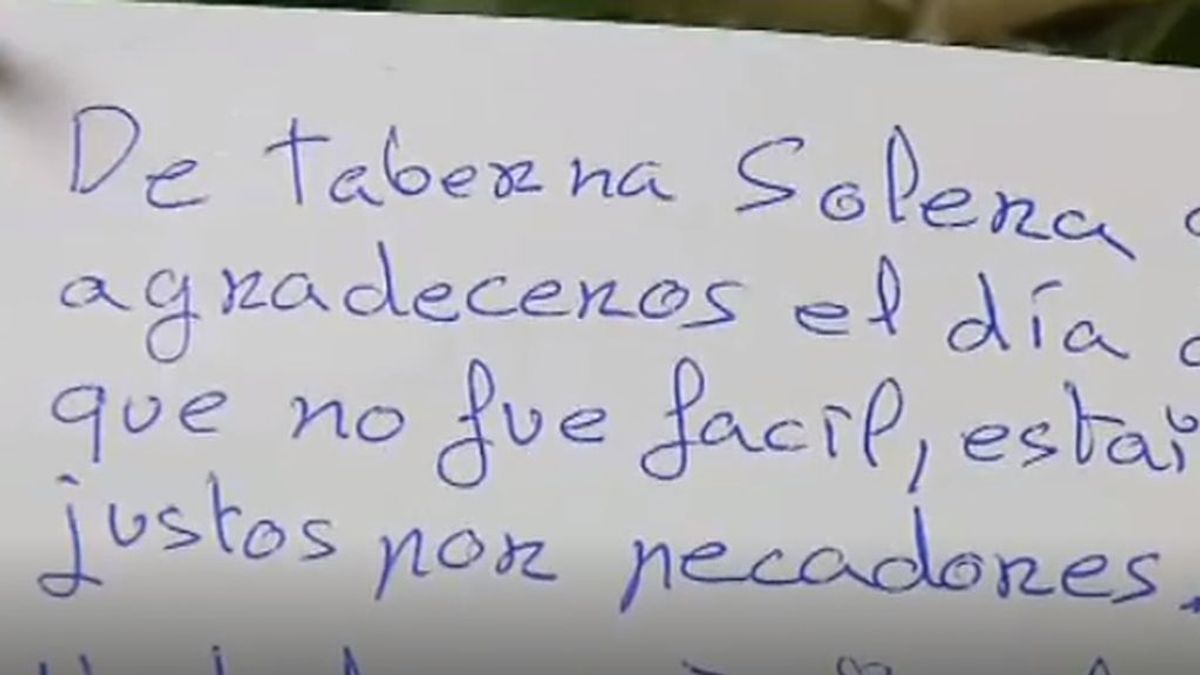 De taberna Solera
agradeceros el día
que no fue facil,
justos por pecadores.